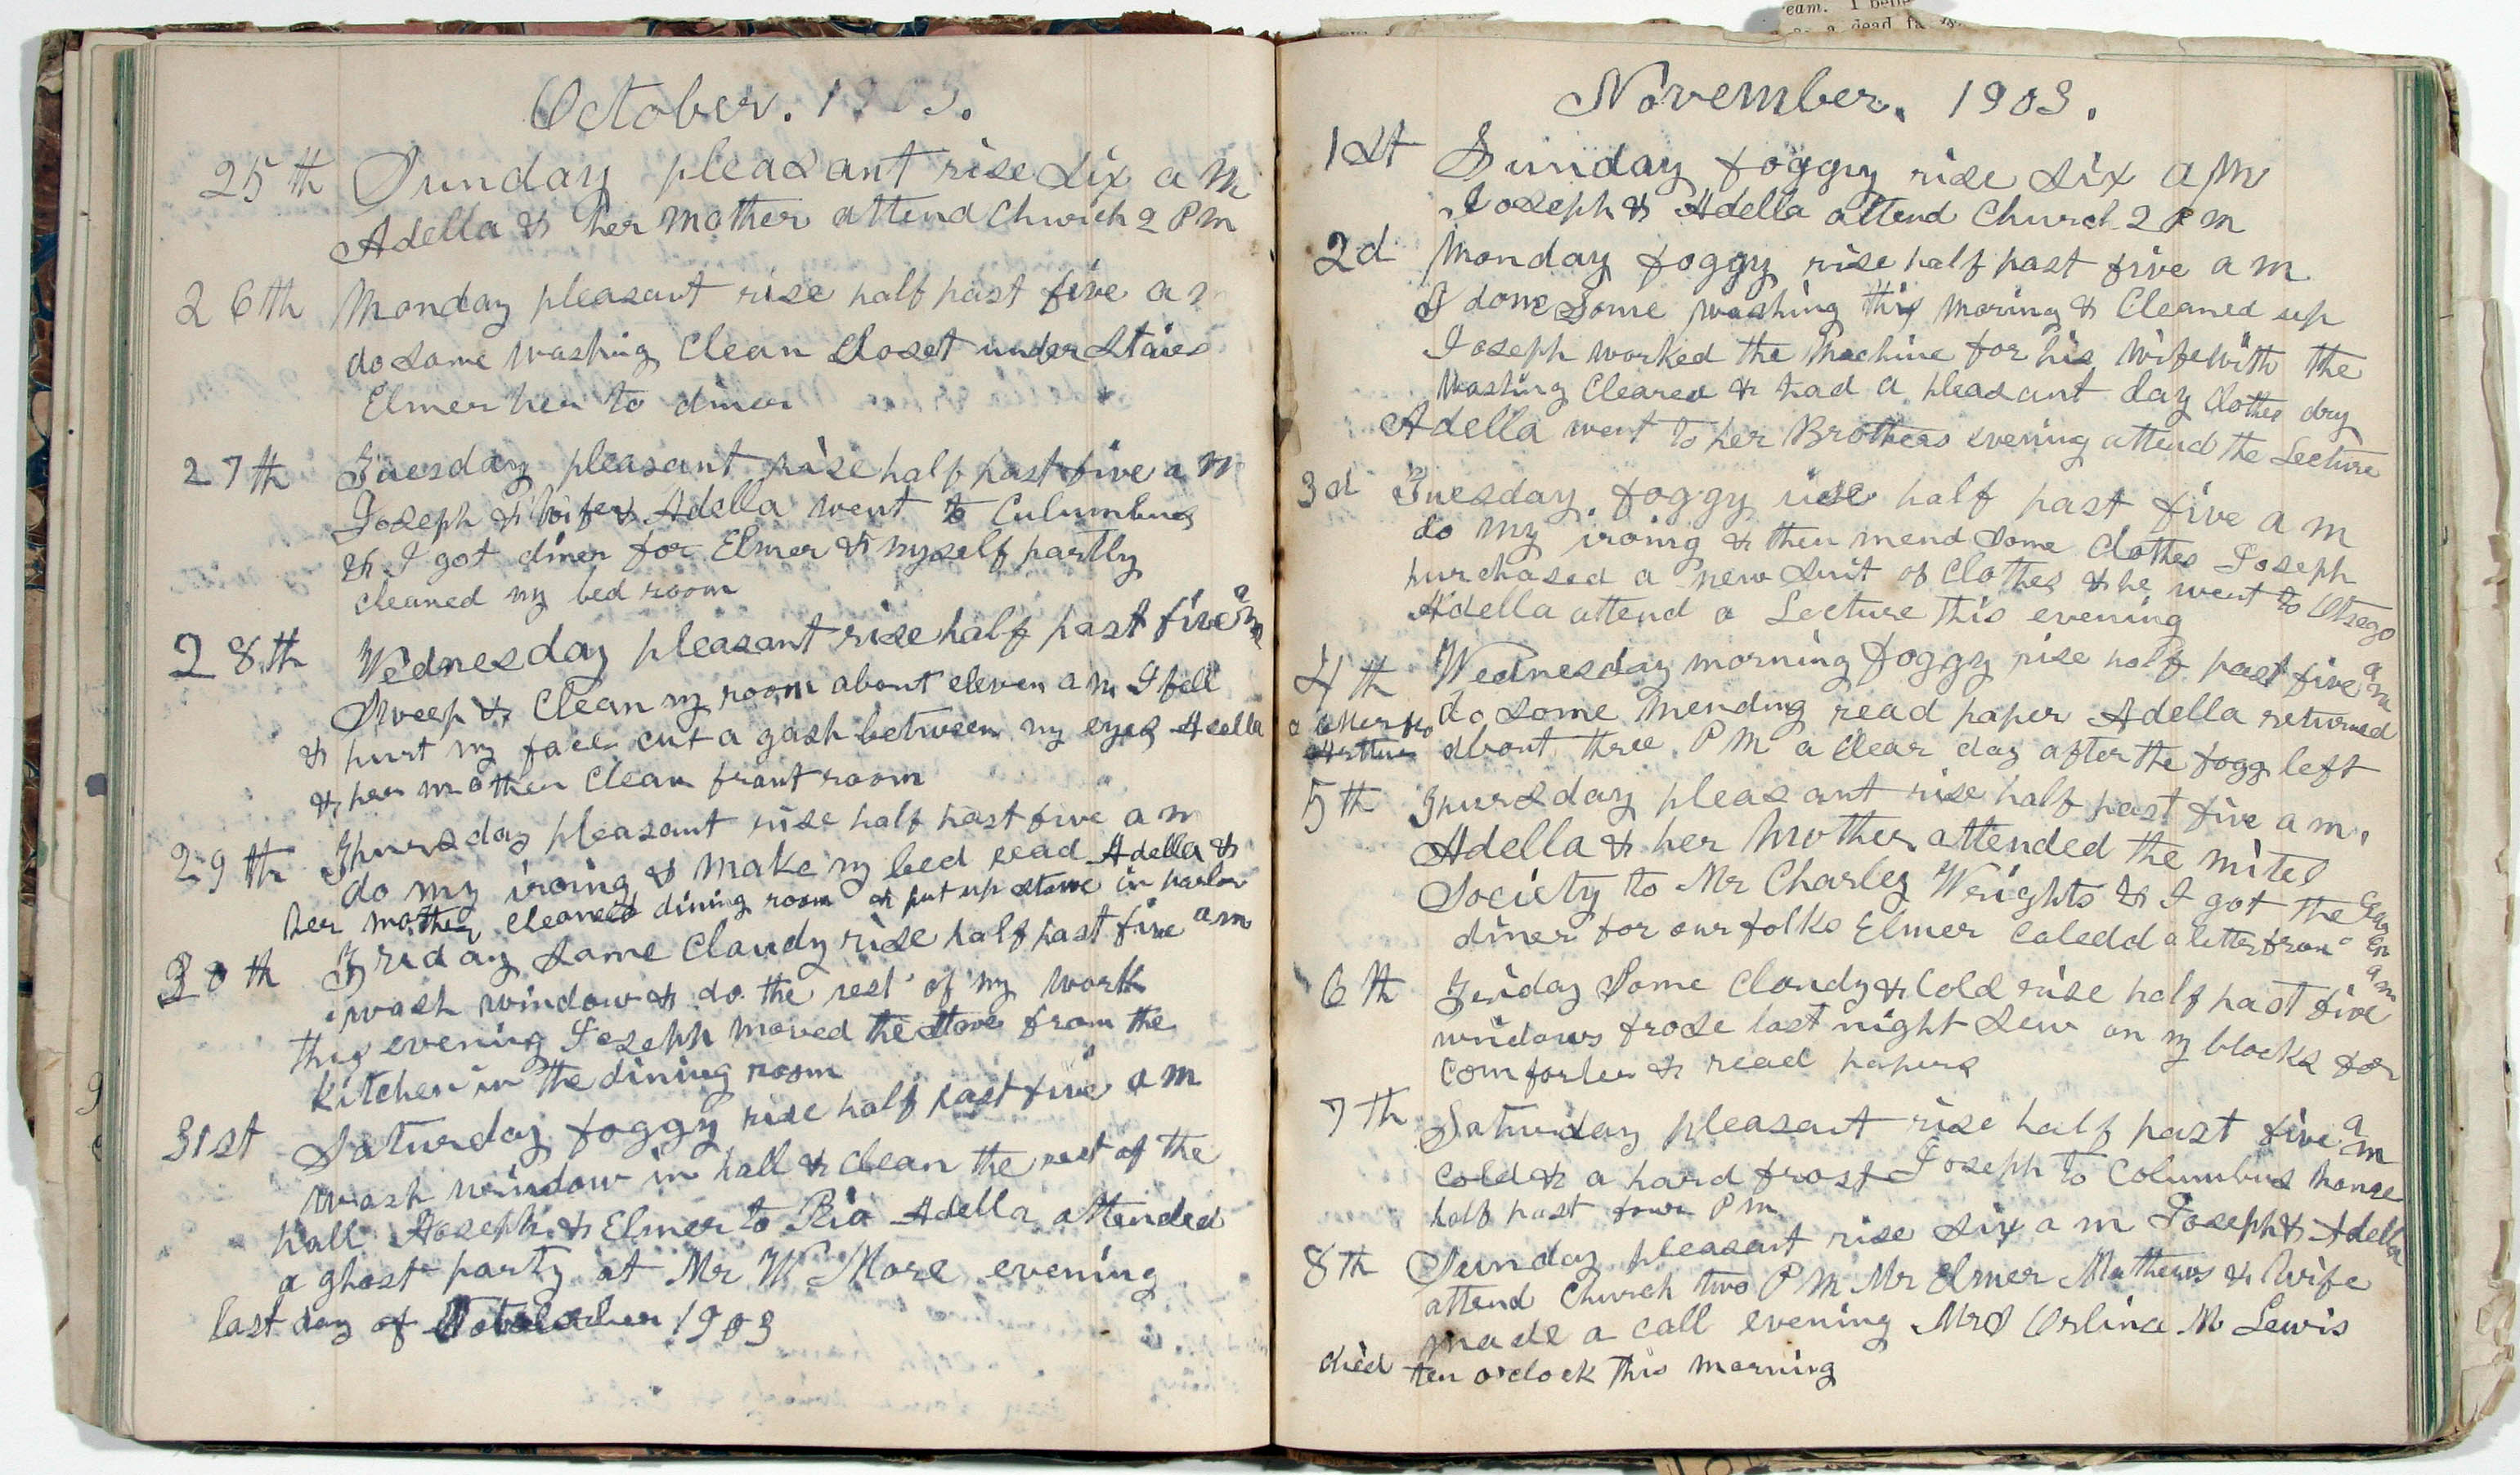 October. 1903.
25th Sunday pleasant rise six a m
Adella & her mother attend Church 2 P m
26th Monday pleasant rise half past five a m
do some washing Clean Closet under Stairs
Elmer her to diner
27th Tuesday pleasant rise half past five a m
Joseph & Wife & Adella went to Culumbus
& I got diner for Elmer & myself partly
cleaned my bed room
28th Wednesday pleasant rise half past five a m
Sweep & Clean my room about eleven a m I fell
& hurt my face cut a gash between my eyes Adella
& her mother Clean front room
29th Thursday pleasant rise half past five a m
do my iroing & make my bed read Adella &
her mother cleaned dining room & put up stove in parlor
30th Friday some Cloudy rise half past five a m
wash window & do the rest of my work
this evening Joseph moved the stove from the
kitchen in the dining room
31st Saturday foggy rise half past five a m
wash window in hall & clean the rest of the
hall Joseph & Elmer to Rio Adella attended
a ghost party at Mr W More evening
last day of 1903
November. 1903.
1st Sunday foggy rise six a m
Joseph & Adella attend Church 2 P m
2d Monday foggy rise half past five a m
I done some washing this moring & Cleaned up
Joseph worked the Machine for his wife with the
washing Cleared & had a pleasant day Clothes dry
Adella went to her Brothers evening attend the Lecture
3d Tuesday. foggy rise half past five a m
do my iroing & then mend some Clothes Joseph
purchased a new suit of Clothes & he went to Otsego
Adella attend a Lecture this evening
4th Wednesday morning foggy rise half past five a m
do some mending read paper Adella returned
a letter to
about three P M a clear day after the fogg left
5th Thursday pleasant rise half past five a m.
Adella & her Mother attended the mite
Society to Mr Charley Wrights & I got the
diner for our folks Elmer caledd a letter from
6th Friday Some Cloudy & Cold rise half past five a m
windows frose last night sew on my blocks for
comforter & read papers
7th Saturday pleasant rise half past five a m
cold & a hard frost Joseph to Columbus home
half past four P m
8th Sunday pleasant rise six a m Joseph & Adella
attend Church two P M Mr Elmer Mathews & Wife
made a call evening Mrs Orlina M Lewis
died ten oclock this morning